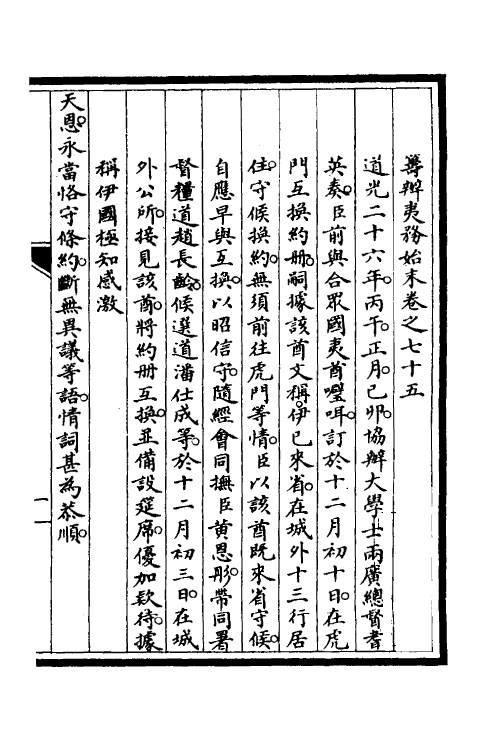 籌辦夷務始末卷之七十五
道光二十六年丙午正月己卯協辦大學士兩廣總督耆
英奏臣前與合眾國夷酋㗒咡訂於十二月初十日在虎
門互換約冊嗣據該酋文稱伊已來省在城外十三行居
住守候換約無須前往虎門等情臣以該酋既來省守候
自應早與互換以昭信守隨經會同撫臣黃恩彤帶同署
督糧道趙長齡候選道潘仕成等於十二月初三日在城
外公所接見該酋將約冊互換並備設筵席優加款待據
稱伊國極知感激
天恩永當恪守條約斷無異議等語情詞甚為恭順
一